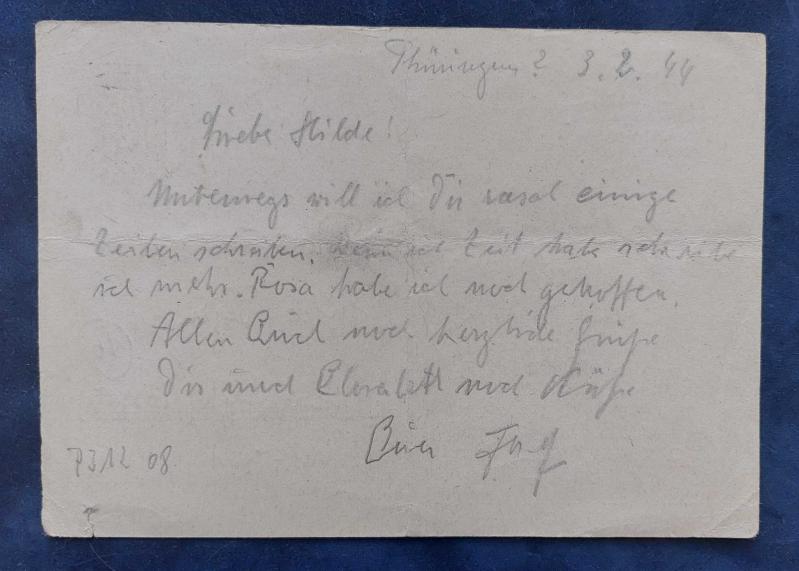 Thüringen? 3. 2. 44
Liebe Hilde!
Unterwegs will ich Dir rasch einige
Zeilen schreiben. Wenn ich Zeit habe schreibe
ich mehr. Rosa habe ich noch getroffen.
Allen Euch noch herzliche Grüße
Dir und Elisabeth noch Küße
Euer